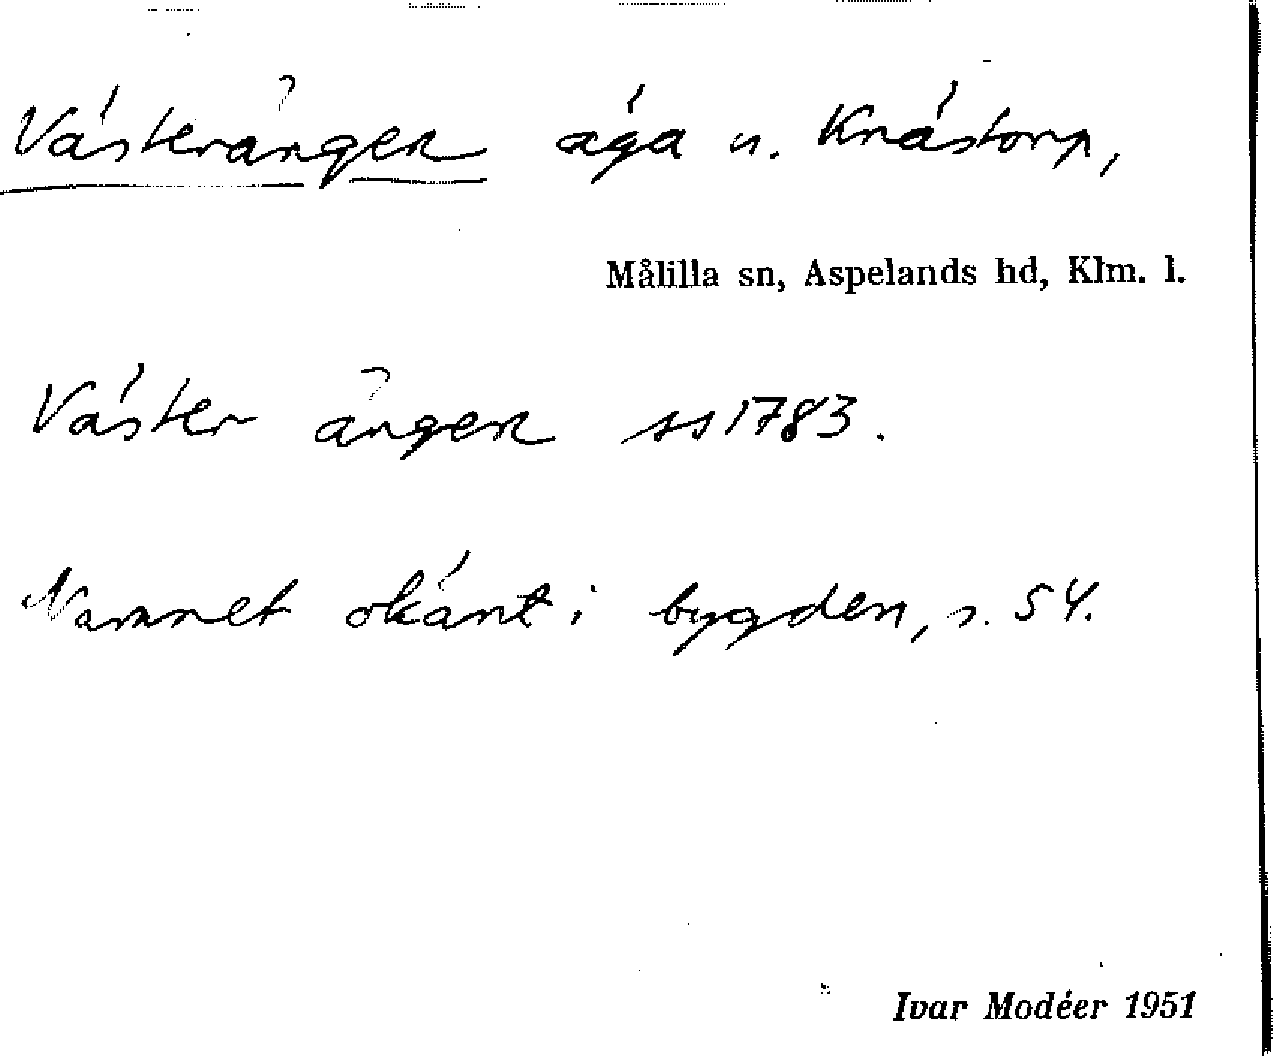 Västerängen äga u. Knästorp,
Målilla sn, Aspelands hd, Klm. l.
Väster ängen ss 1783.
Namnet okänt i bygden, s. 54.
Ivar Modéer 1951